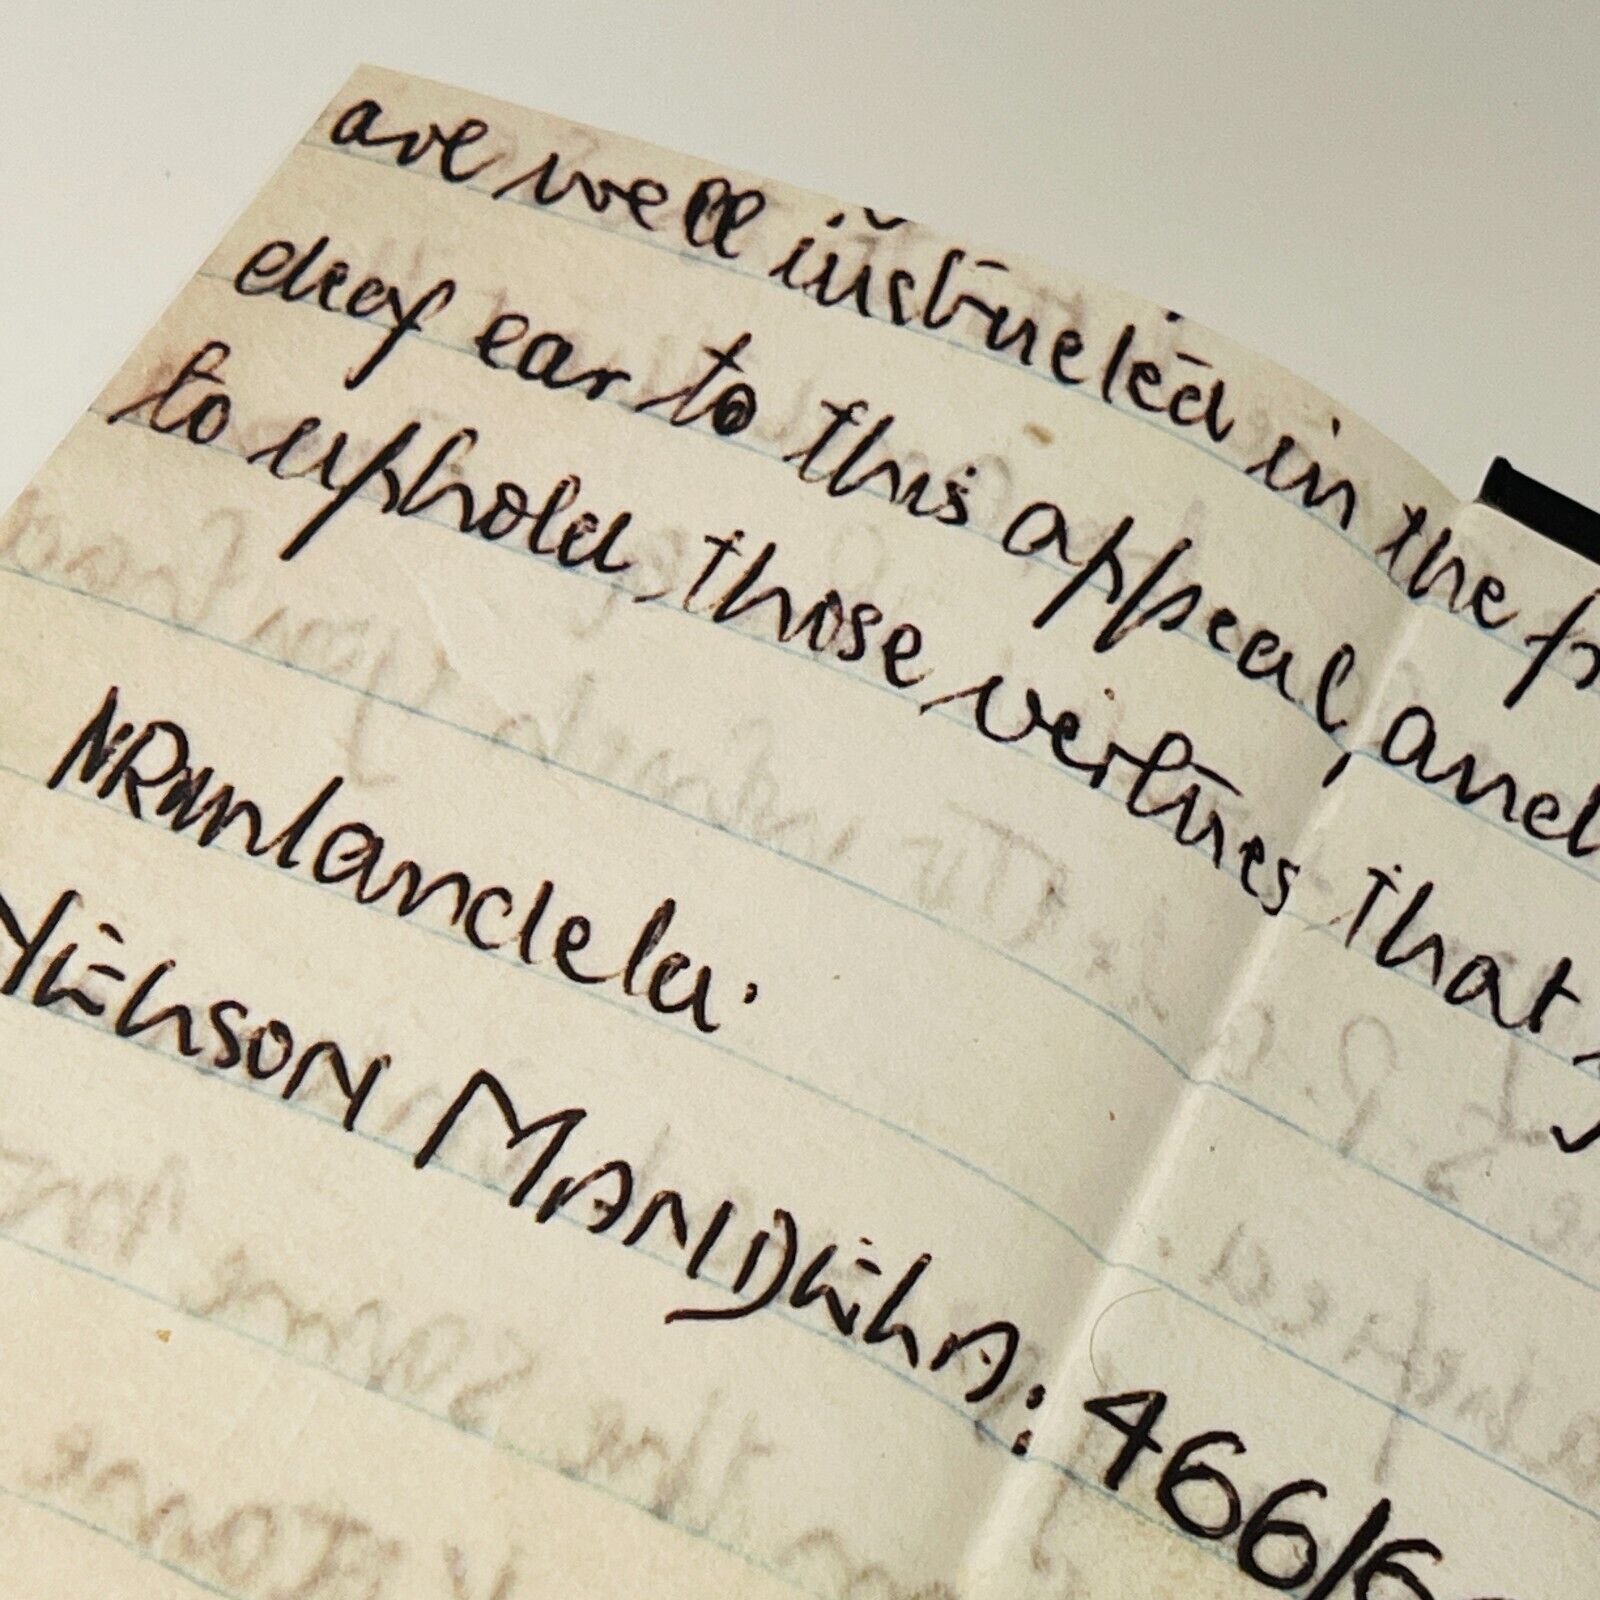 are well instructed in the
deaf ear to this appeal, and
to uphold those vertues that
NRmandela.
NELSON MANDELA: 466/6